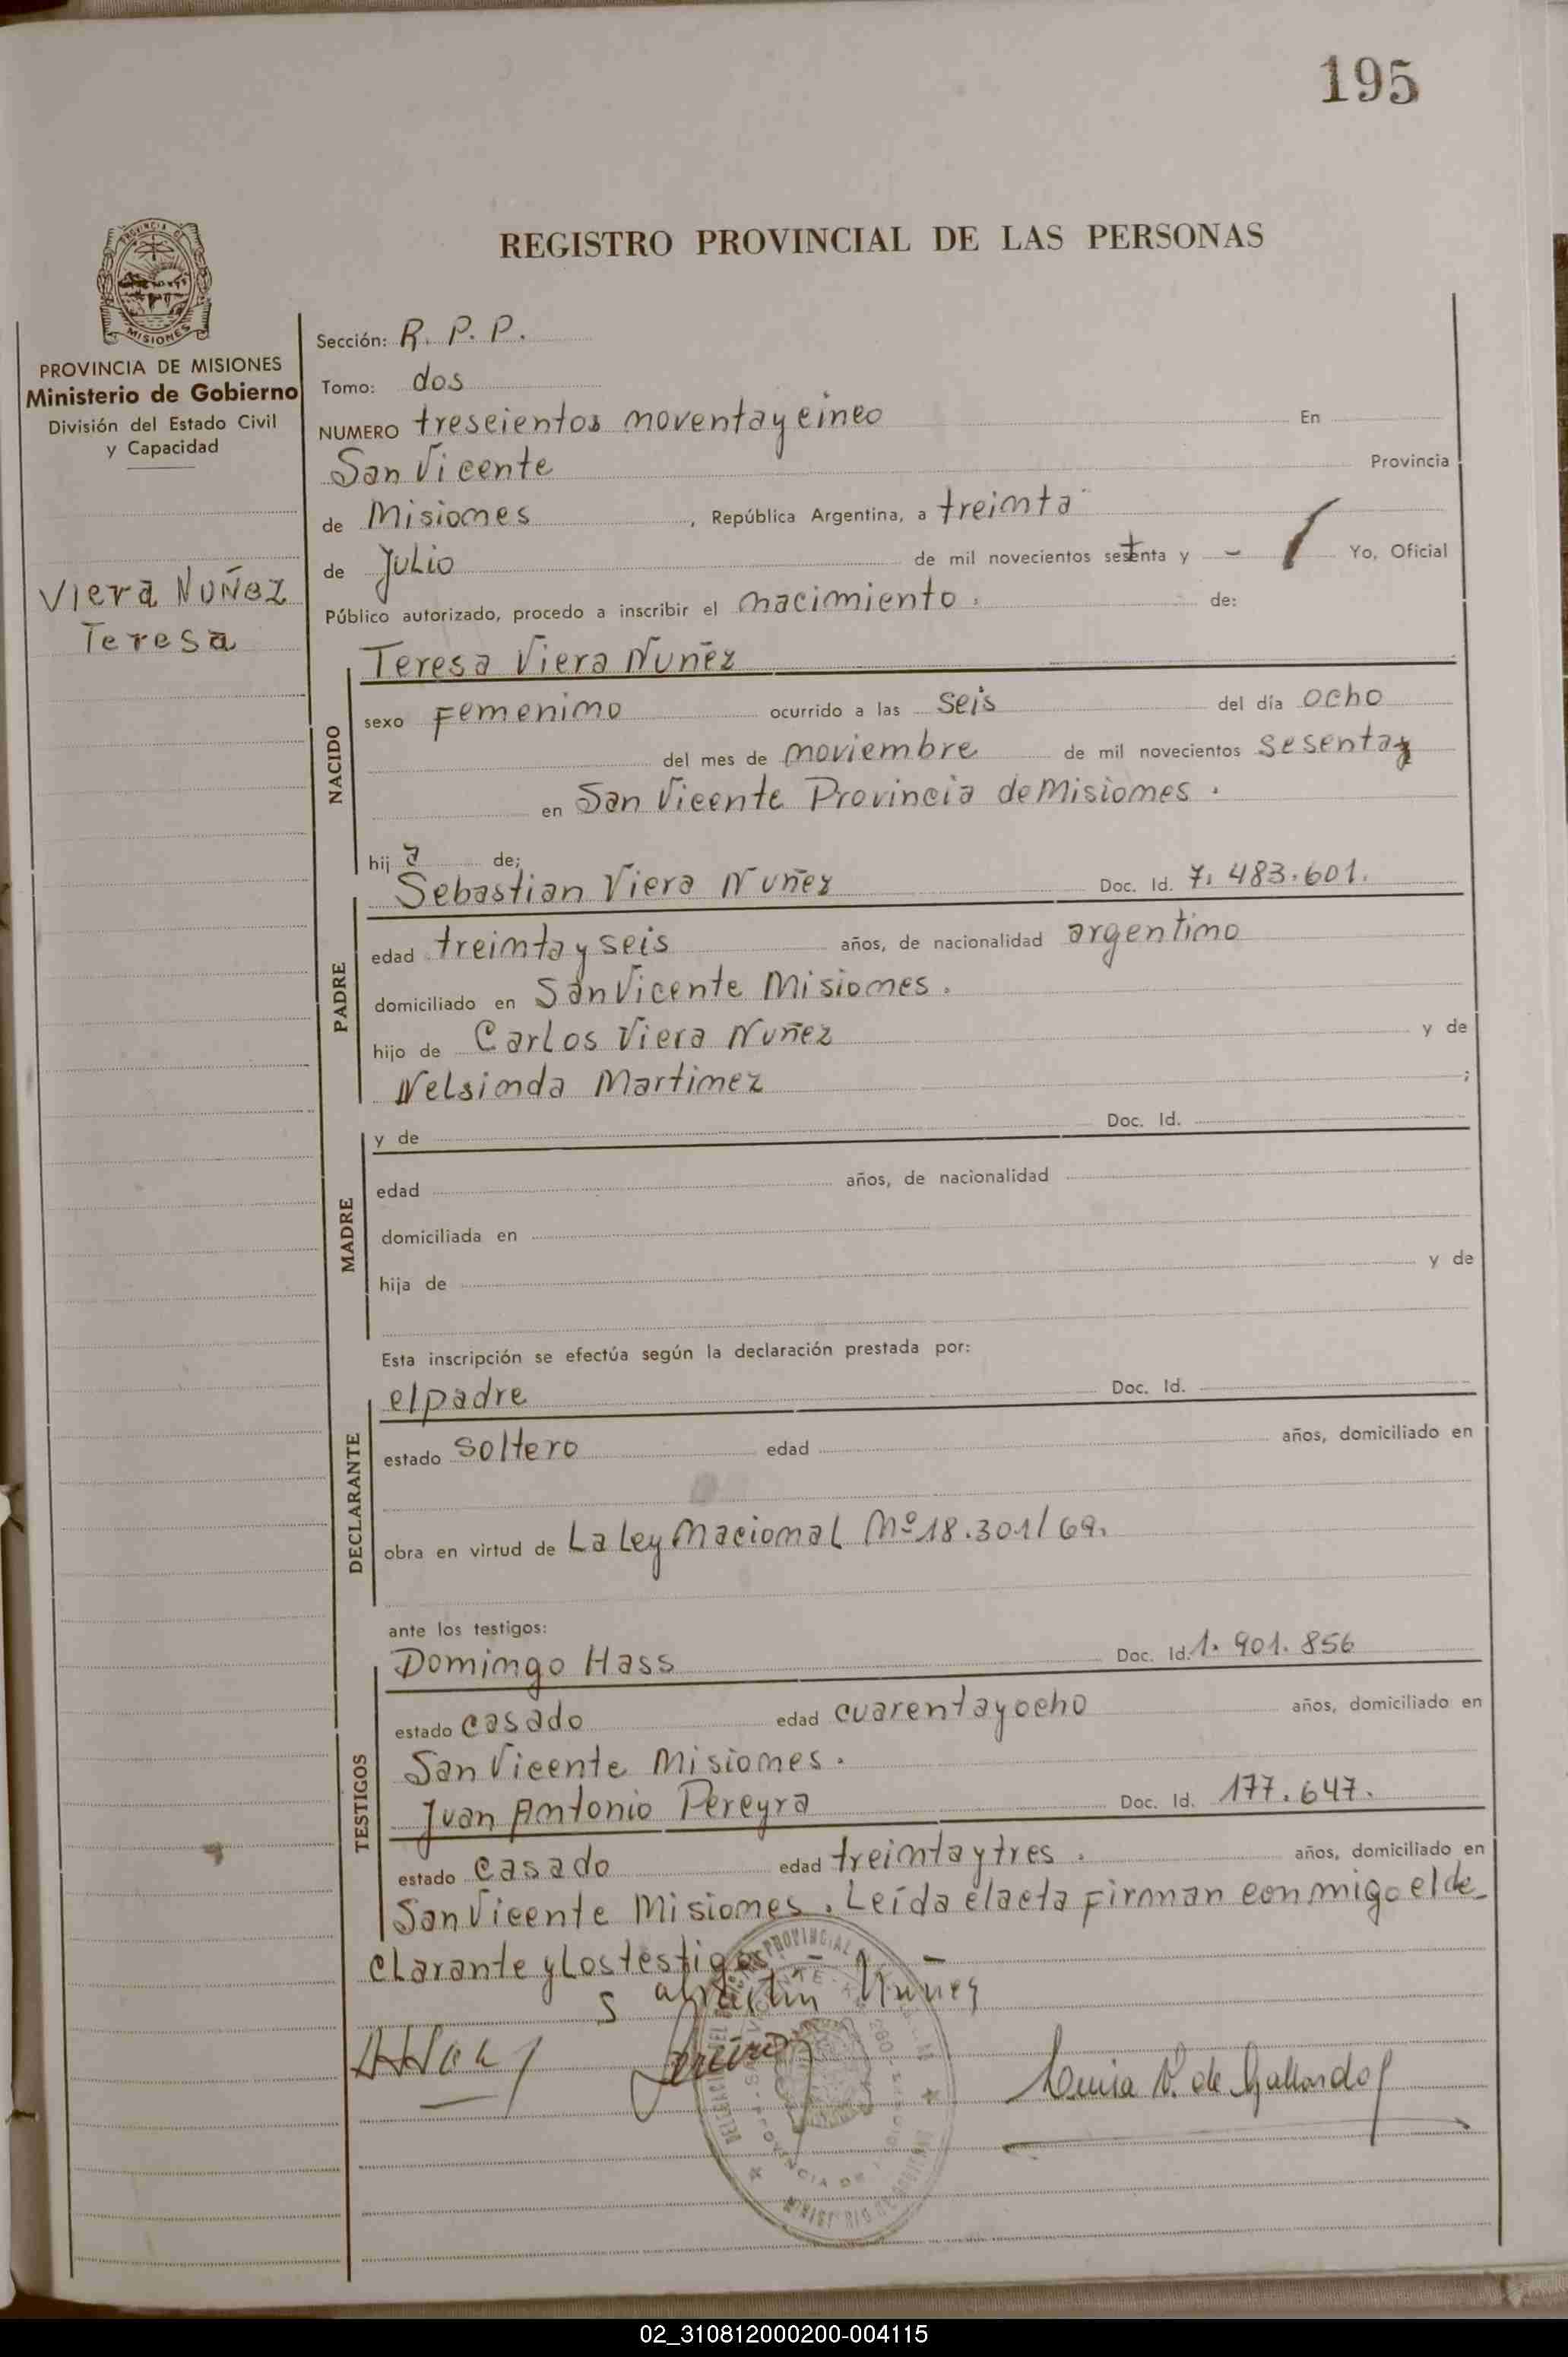 195
REGISTRO PROVINCIAL DE LAS PERSONAS
PROVINCIA DE MISIONES
Ministerio de Gobierno
División del Estado Civil
y Capacidad
Viera Nuñez
Teresa
Sección: R. P. P.
Tomo: dos
NUMERO trescientos noventa y cinco En
San Vicente Provincia
de Misiones, República Argentina, a treinta
de Julio de mil novecientos setenta y - Yo, Oficial
Público autorizado, procedo a inscribir el nacimiento. de:
NACIDO
Teresa Viera Nuñez
sexo Femenino ocurrido a las seis del día ocho
del mes de noviembre de mil novecientos sesenta y
en San Vicente Provincia de Misiones.
hija de;
PADRE
Sebastian Viera Nuñez Doc. Id. 7.483.601.
edad treinta y seis años, de nacionalidad argentino
domiciliado en San Vicente Misiones.
hijo de Carlos Viera Nuñez y de
Nelsinda Martinez ;
MADRE
y de Doc. Id.
edad años, de nacionalidad
domiciliada en
hija de y de
Esta inscripción se efectúa según la declaración prestada por:
DECLARANTE
el padre Doc. Id.
estado soltero edad años, domiciliado en
obra en virtud de La Ley Nacional Nº 18.301/69.
ante los testigos:
TESTIGOS
Domingo Hass Doc. Id. 1.901.856
estado casado edad cuarenta y ocho años, domiciliado en
San Vicente Misiones.
Juan Antonio Pereyra Doc. Id. 177.647.
estado casado edad treinta y tres. años, domiciliado en
San Vicente Misiones. Leída el acta firman conmigo el de-
clarante y los testigos
Nuñes
Luisa V. de Gallardo
02_310812000200-004115